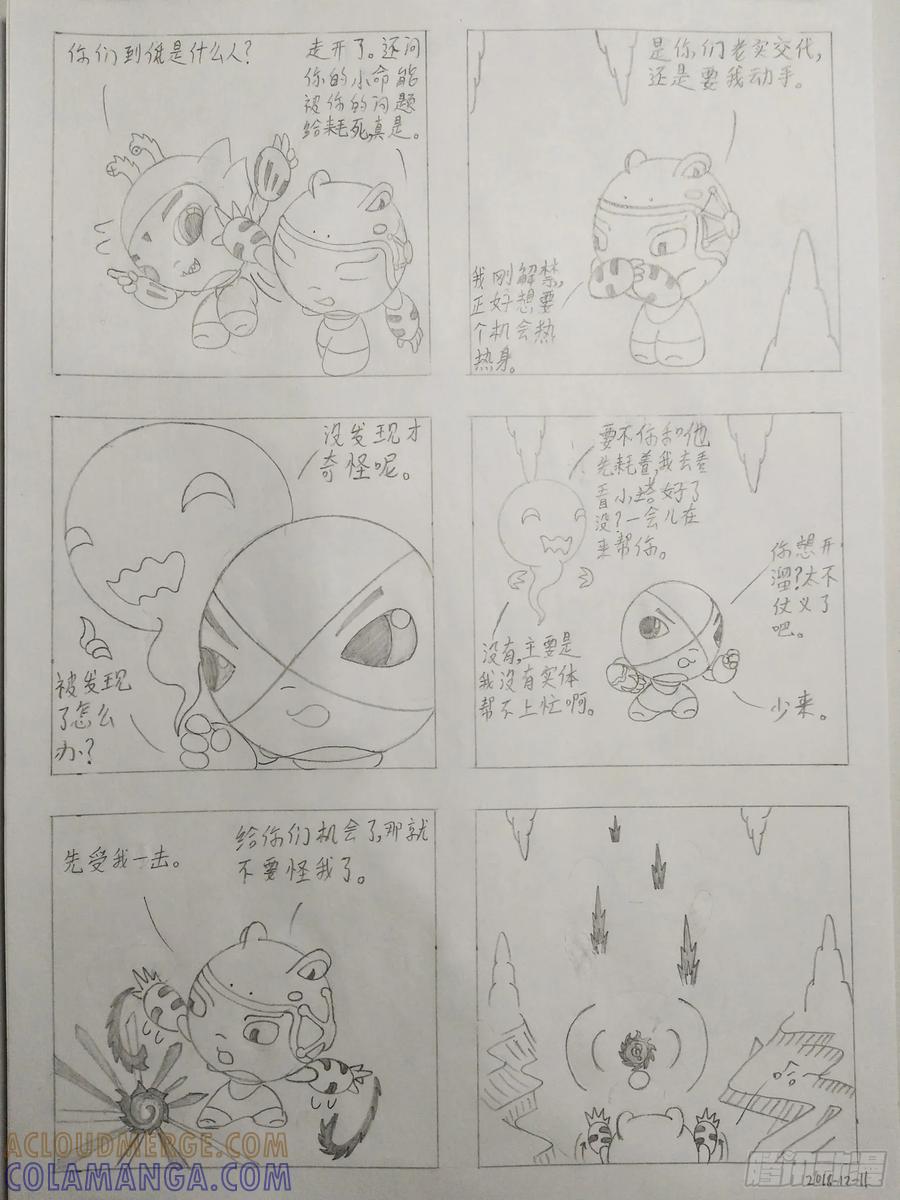 你们到低是什么人?
走开了。还问
你的小命能
被你的问题
给耗死,真是。
是你们老实交代,
还是要我动手。
我刚解禁,
正好想要
个机会热
热身。
没发现才
奇怪呢。
被发现
了怎么
办?
要不你和他
先耗着,我去看
看小塔好了
没?一会儿在
来帮你。
你想开
溜?太不
仗义了
吧。
没有,主要是
我没有实体
帮不上忙啊。
少来。
先受我一击。
给你们机会了,那就
不要怪我了。
哈
ACLOUDMERGE.COM
COLAMANGA.COM
腾讯动漫
2018-12-11